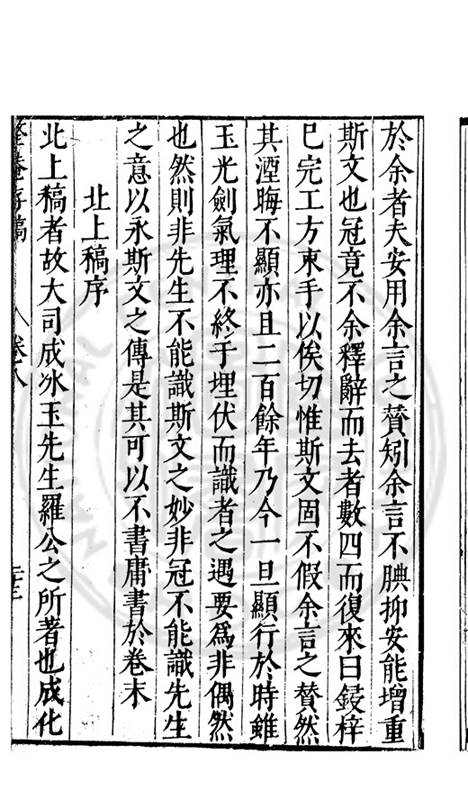 於余者夫安用余言之贊矧余言不腆抑安能增重
斯文也冠竟不余釋辭而去者數四而復來曰鋟梓
已完工方束手以俟切惟斯文固不假余言之賛然
其湮晦不顯亦且二百餘年乃今一旦顯行於時雖
玉光劍氣理不終于埋伏而識者之遇要爲非偶然
也然則非先生不能識斯文之妙非冠不能識先生
之意以永斯文之傳是其可以不書庸書於卷末
北上稿序
北上稿者故大司成冰玉先生羅公之所著也成化
存稿 卷八